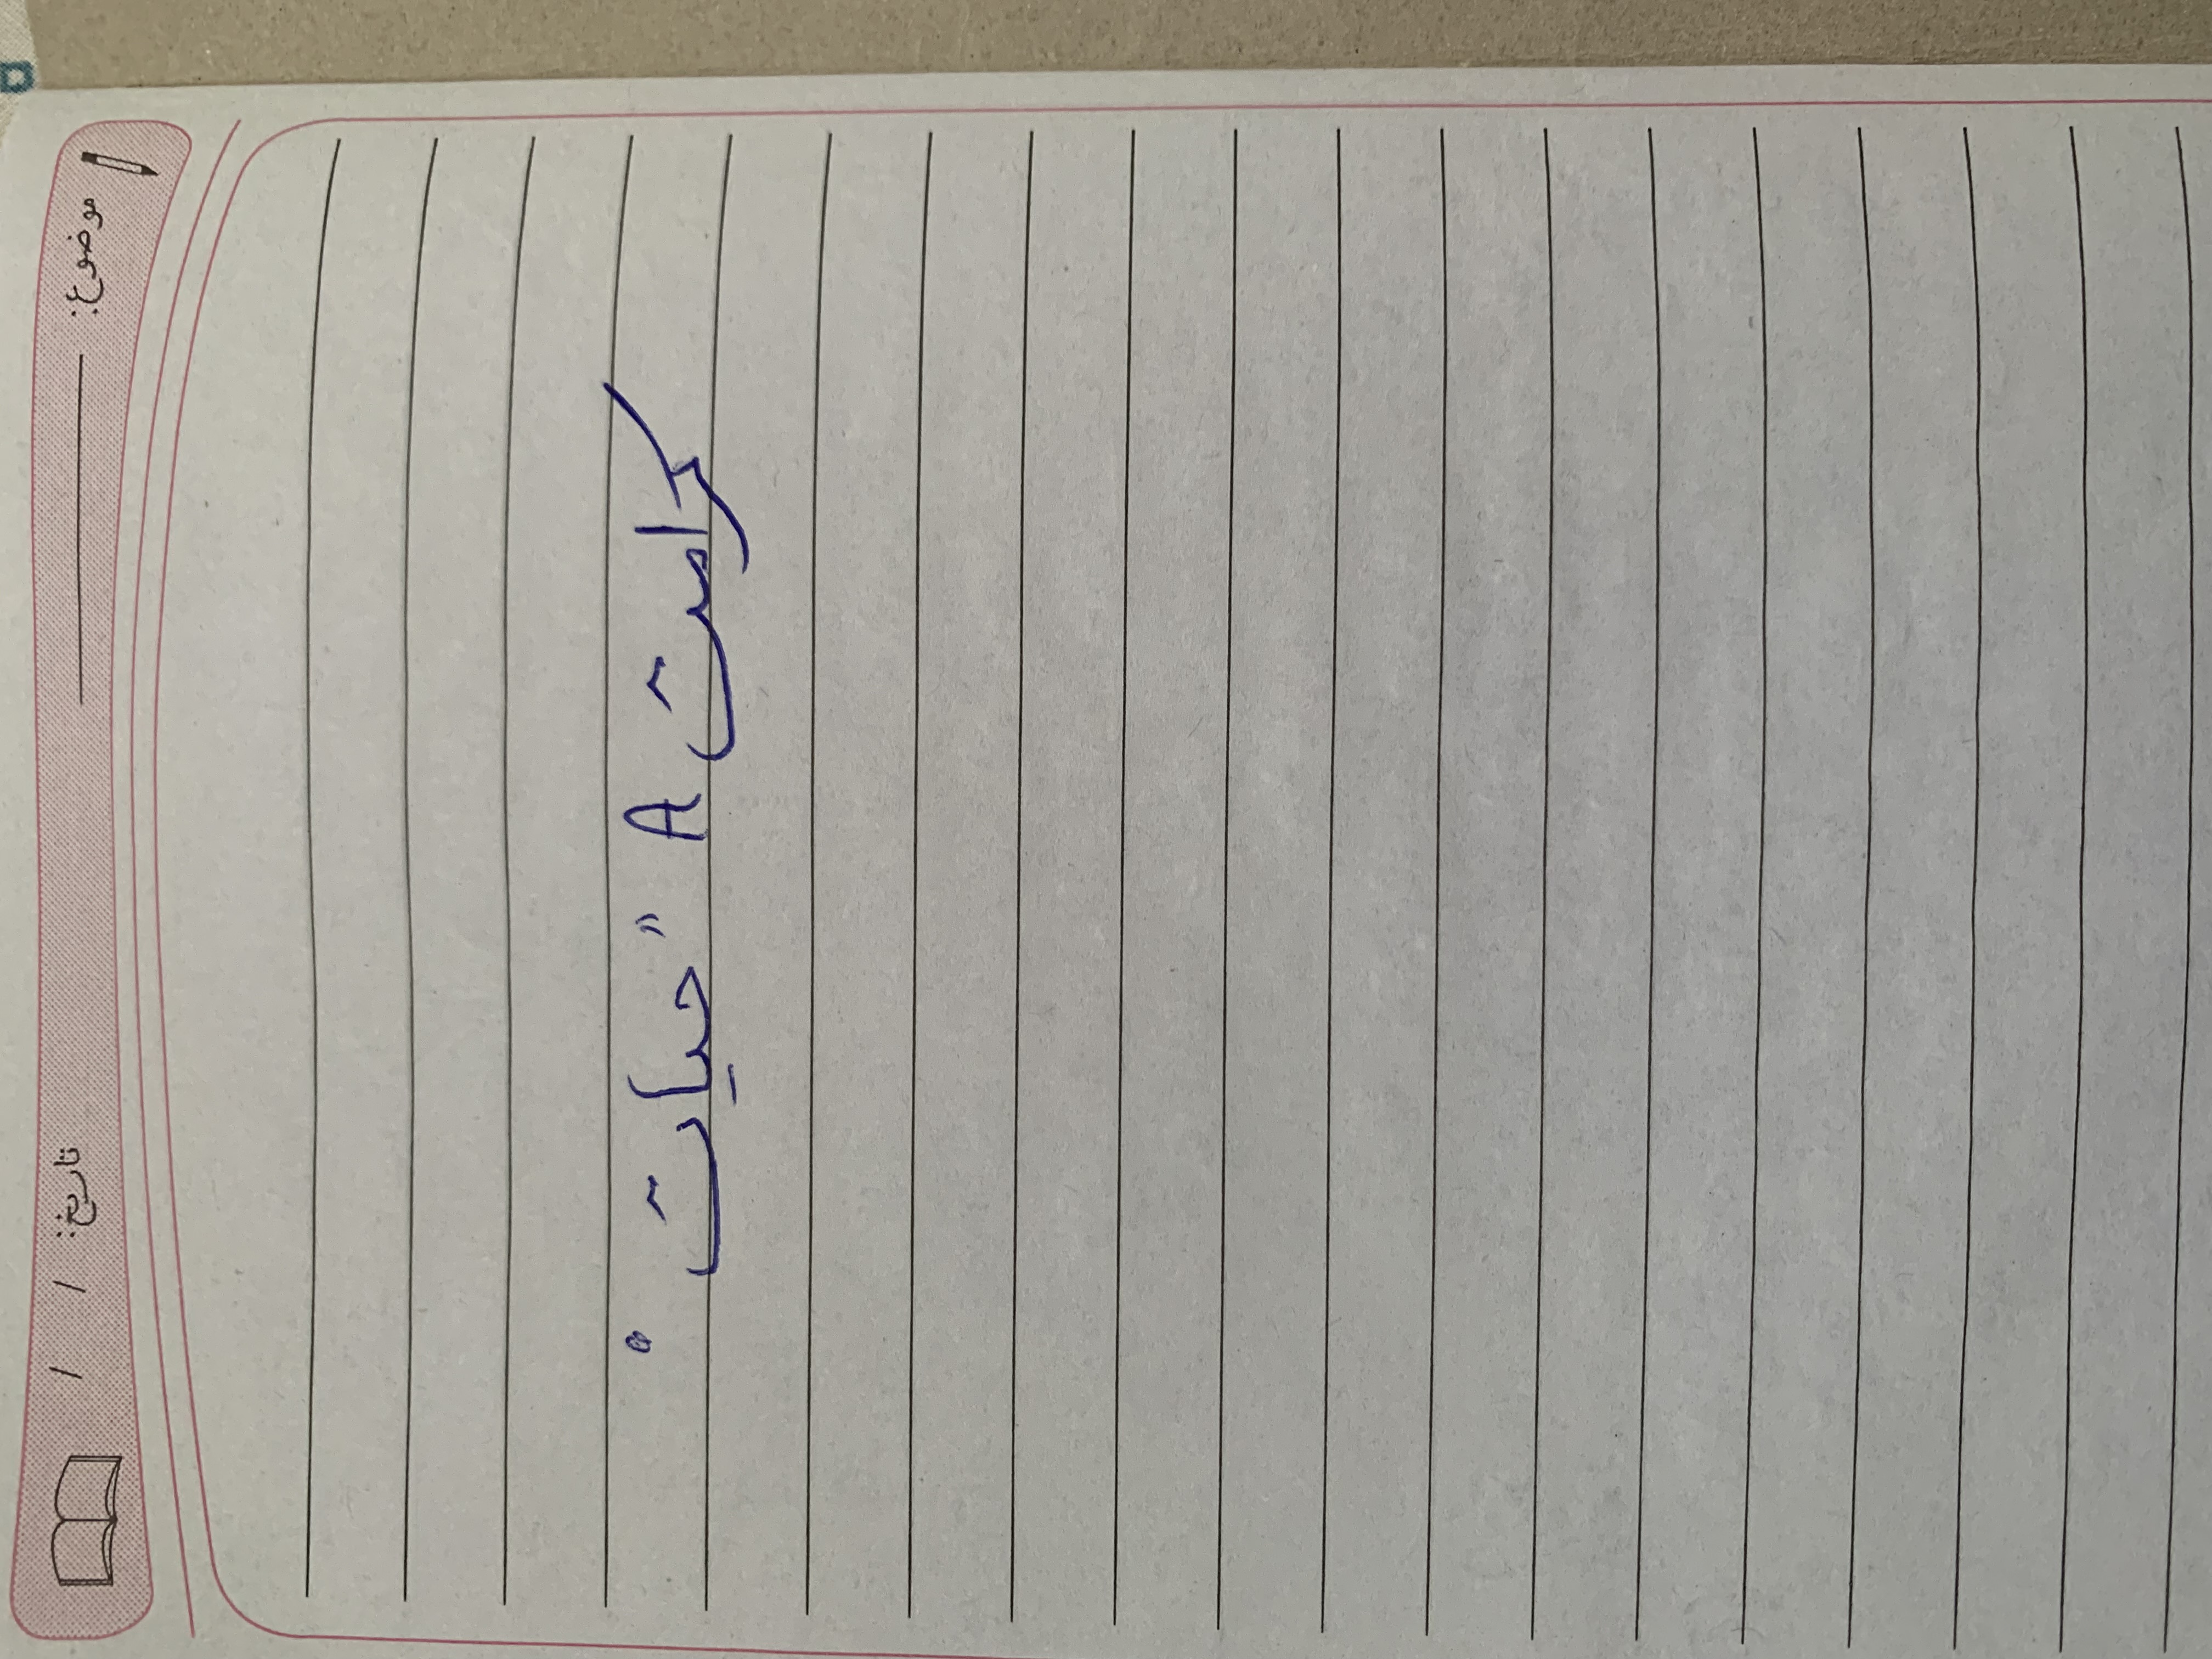 موضوع: تاریخ: / /
کرامت A "حیات"